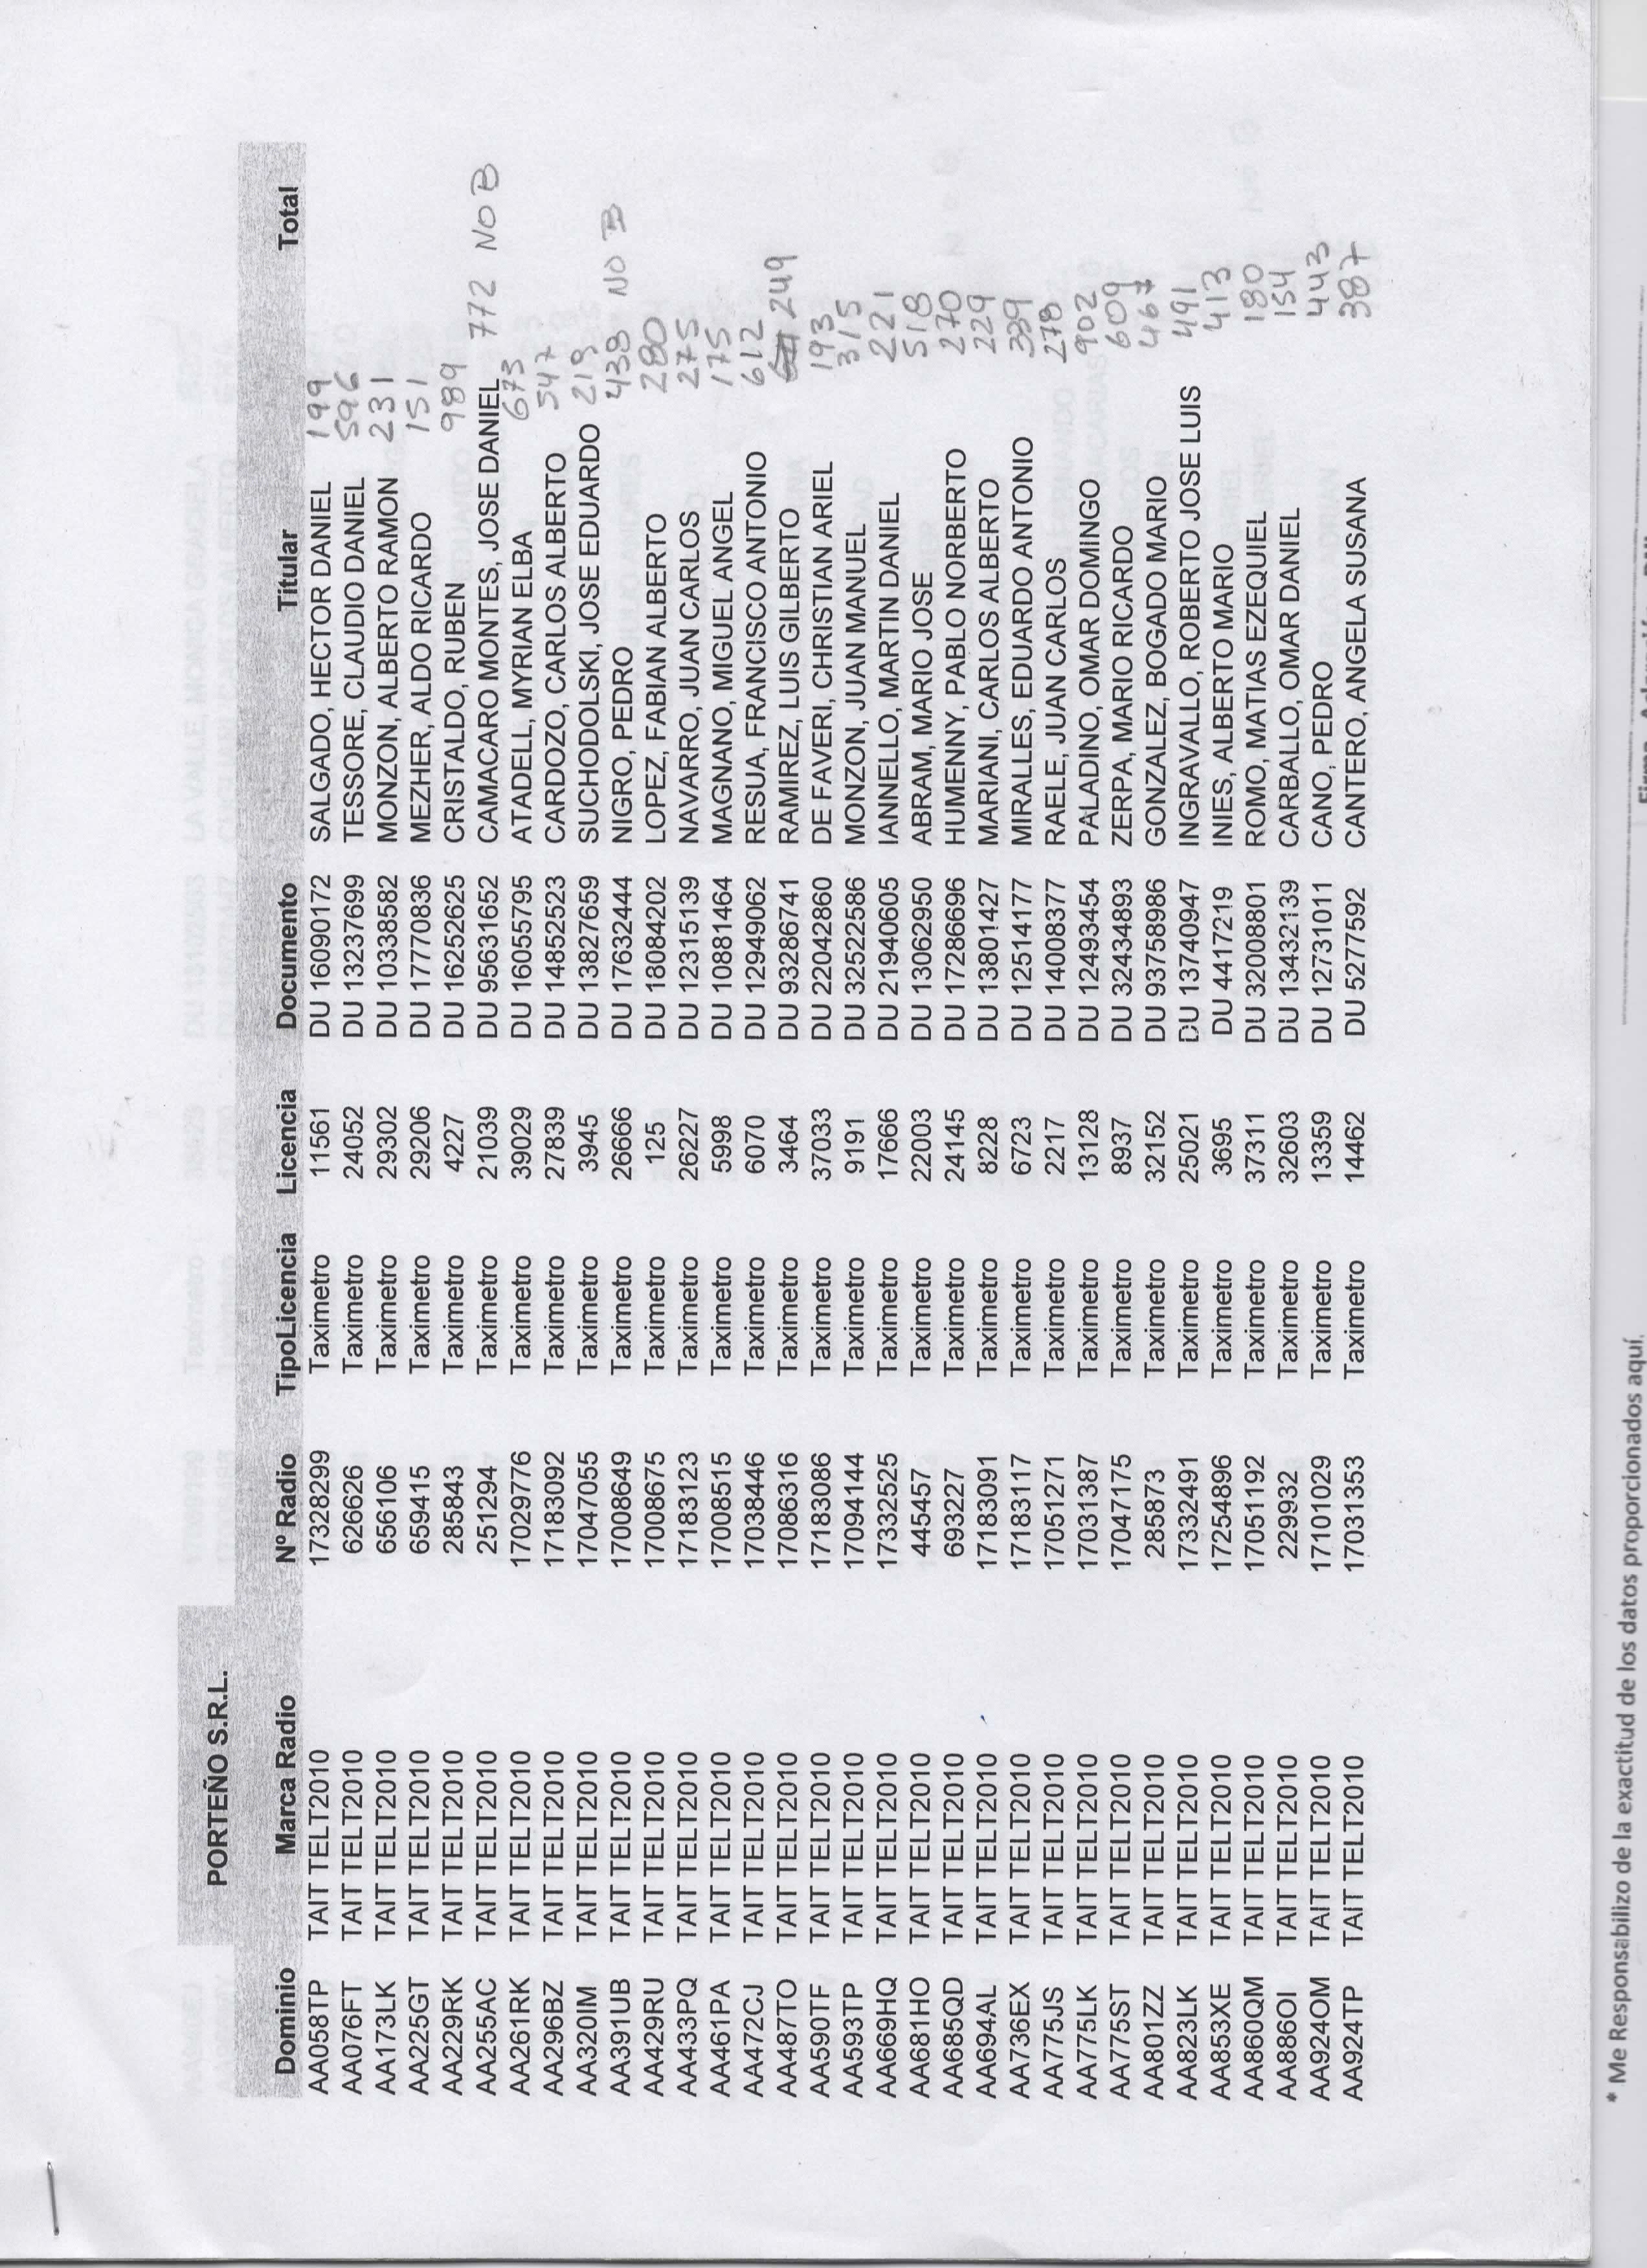 PORTEÑO S.R.L.
Dominio Marca Radio Nº Radio TipoLicencia Licencia Documento Titular Total
AA058TP TAIT TELT2010 17328299 Taximetro 11561 DU 16090172 SALGADO, HECTOR DANIEL 199
AA076FT TAIT TELT2010 626626 Taximetro 24052 DU 13237699 TESSORE, CLAUDIO DANIEL 596
AA173LK TAIT TELT2010 656106 Taximetro 29302 DU 10338582 MONZON, ALBERTO RAMON 231
AA225GT TAIT TELT2010 659415 Taximetro 29206 DU 17770836 MEZHER, ALDO RICARDO 151
AA229RK TAIT TELT2010 285843 Taximetro 4227 DU 16252625 CRISTALDO, RUBEN 989
AA255AC TAIT TELT2010 251294 Taximetro 21039 DU 95631652 CAMACARO MONTES, JOSE DANIEL 772 NO B
AA261RK TAIT TELT2010 17029776 Taximetro 39029 DU 16055795 ATADELL, MYRIAN ELBA 673
AA296BZ TAIT TELT2010 17183092 Taximetro 27839 DU 14852523 CARDOZO, CARLOS ALBERTO 547
AA320IM TAIT TELT2010 17047055 Taximetro 3945 DU 13827659 SUCHODOLSKI, JOSE EDUARDO
AA391UB TAIT TELT2010 17008649 Taximetro 26666 DU 17632444 NIGRO, PEDRO 438 NO B
AA429RU TAIT TELT2010 17008675 Taximetro 125 DU 18084202 LOPEZ, FABIAN ALBERTO 280
AA433PQ TAIT TELT2010 17183123 Taximetro 26227 DU 12315139 NAVARRO, JUAN CARLOS 275
AA461PA TAIT TELT2010 17008515 Taximetro 5998 DU 10881464 MAGNANO, MIGUEL ANGEL 175
AA472CJ TAIT TELT2010 17038446 Taximetro 6070 DU 12949062 RESUA, FRANCISCO ANTONIO 612
AA487TO TAIT TELT2010 17086316 Taximetro 3464 DU 93286741 RAMIREZ, LUIS GILBERTO 249
AA590TF TAIT TELT2010 17183086 Taximetro 37033 DU 22042860 DE FAVERI, CHRISTIAN ARIEL 193
AA593TP TAIT TELT2010 17094144 Taximetro 9191 DU 32522586 MONZON, JUAN MANUEL 315
AA669HQ TAIT TELT2010 17332525 Taximetro 17666 DU 21940605 IANNELLO, MARTIN DANIEL 221
AA681HO TAIT TELT2010 445457 Taximetro 22003 DU 13062950 ABRAM, MARIO JOSE 518
AA685QD TAIT TELT2010 693227 Taximetro 24145 DU 17286696 HUMENNY, PABLO NORBERTO 270
AA694AL TAIT TELT2010 17183091 Taximetro 8228 DU 13801427 MARIANI, CARLOS ALBERTO 229
AA736EX TAIT TELT2010 17183117 Taximetro 6723 DU 12514177 MIRALLES, EDUARDO ANTONIO 339
AA775JS TAIT TELT2010 17051271 Taximetro 2217 DU 14008377 RAELE, JUAN CARLOS 278
AA775LK TAIT TELT2010 17031387 Taximetro 13128 DU 12493454 PALADINO, OMAR DOMINGO 902
AA775ST TAIT TELT2010 17047175 Taximetro 8937 DU 32434893 ZERPA, MARIO RICARDO 609
AA801ZZ TAIT TELT2010 285873 Taximetro 32152 DU 93758986 GONZALEZ, BOGADO MARIO 467
AA823LK TAIT TELT2010 17332491 Taximetro 25021 DU 13740947 INGRAVALLO, ROBERTO JOSE LUIS 491
AA853XE TAIT TELT2010 17254896 Taximetro 3695 DU 4417219 INIES, ALBERTO MARIO 413
AA860QM TAIT TELT2010 17051192 Taximetro 37311 DU 32008801 ROMO, MATIAS EZEQUIEL 180
AA886OI TAIT TELT2010 229932 Taximetro 32603 DU 13432139 CARBALLO, OMAR DANIEL 154
AA924OM TAIT TELT2010 17101029 Taximetro 13359 DU 12731011 CANO, PEDRO 443
AA924TP TAIT TELT2010 17031353 Taximetro 14462 DU 5277592 CANTERO, ANGELA SUSANA 387
* Me Responsabilizo de la exactitud de los datos proporcionados aquí.